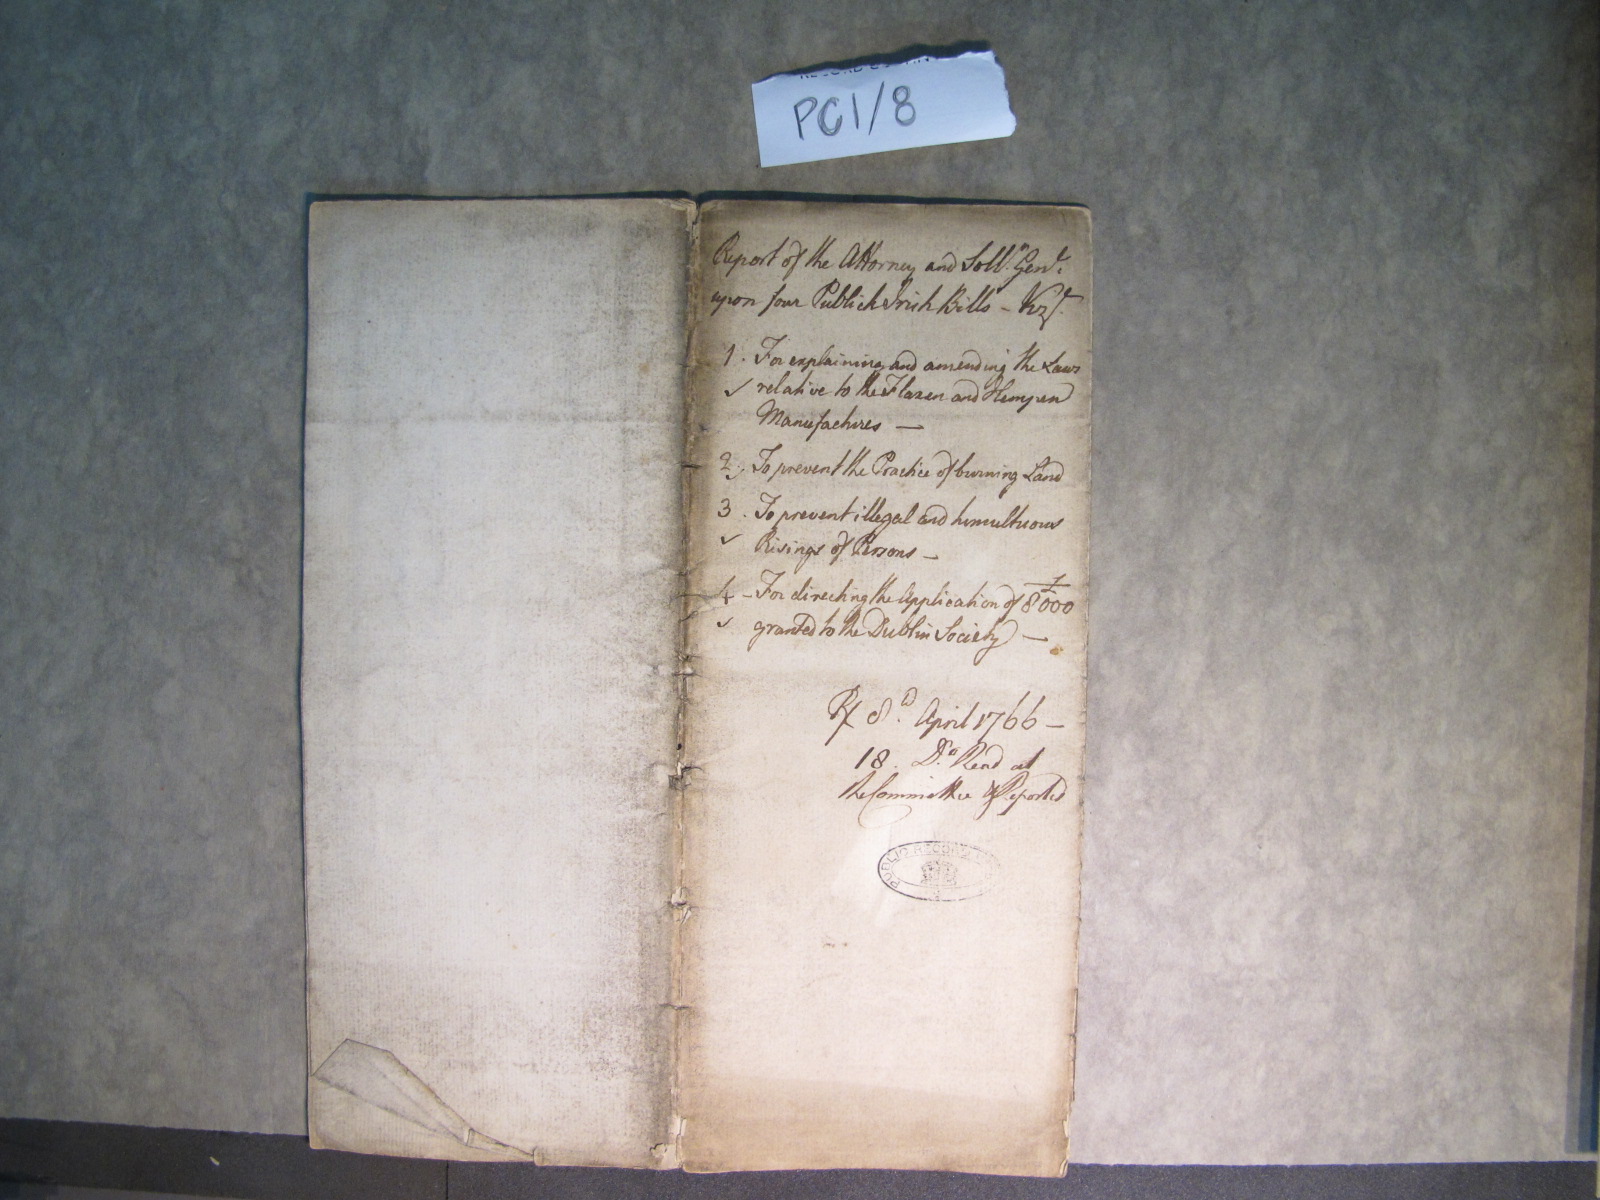 PC1/8
Report of the Attorney and Sollr. Genl.
upon four Publick Irish Bills – Vizt.
1. For explaining and amending the Laws
✓ relative to the Flaxen and Hempen
Manufactures —
2. To prevent the Practice of burning Land
3. To prevent illegal and tumultuous
✓ Risings of Persons –
4 – For directing the Application of £8000
✓ granted to the Dublin Society —
Rx 8th. April 1766 –
18. Do. Read at
the Committee & Reported
PUBLIC RECORD